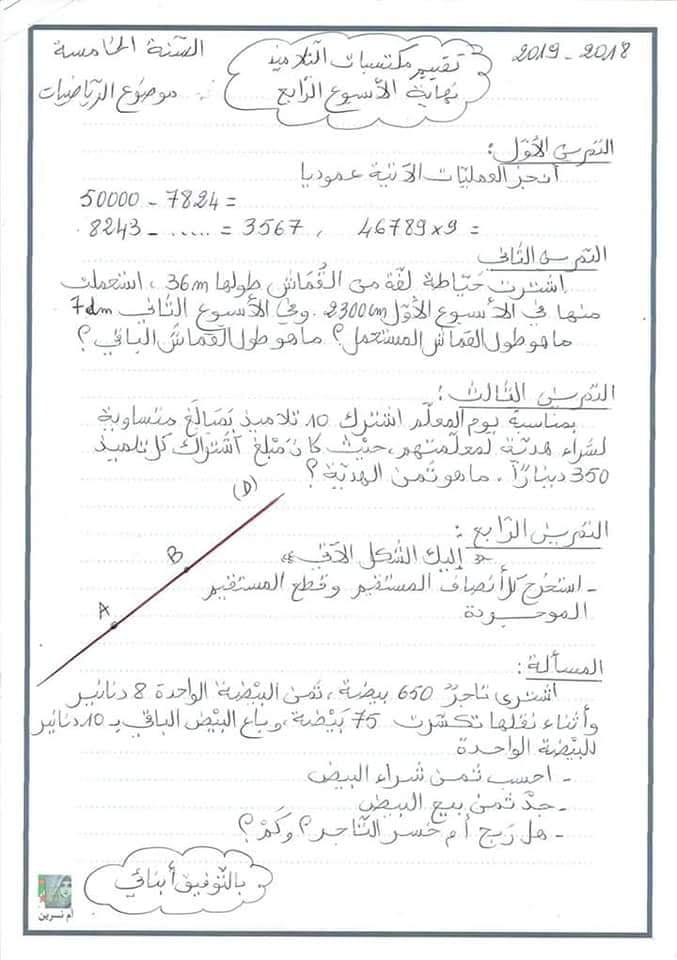 السّنة الخامسة
تقييم مكتسبات التلاميذ
2018 - 2019
موضوع الرّياضيات
نهاية الأسبوع الرّابع
التمرين الأوّل :
أنجز العمليّات الآتية عموديا
50000 - 7824 =
8243 - ..... = 3567 , 46789 x 9 =
التمرين الثاني
اشترت خيّاطة لفّة من القُماش طولها 36m ، استعملت
منها في الأسبوع الأوّل 2300cm . وفي الأسبوع الثّاني 7dm
ما هو طول القماش المستعمل ؟ ما هو طول القماش الباقي ؟
التمرين الثالث :
بمناسبة يوم المعلّم اشترك 10 تلاميذ بمبالغ متساوية
لشراء هديّة لمعلّمتهم، حيث كان مبلغ اشتراك كل تلميذ
350 دينارًا . ما هو ثمن الهديّة ؟
(D)
التمرين الرّابع :
إليك الشكل الآتي
B
- استخرج كل أنصاف المستقيم وقطع المستقيم
A
الموجودة
المسألة :
اشترى تاجرٌ 650 بيضة ، ثمن البيضة الواحدة 8 دنانير
وأثناء نقلها تكسّرت 75 بَيْضة ، وباع البيض الباقي بـ 10 دنانير
للبيضة الواحدة
- احسب ثمن شراء البيض
- جدْ ثمن بيع البيض
- هل ربح أم خسر التّاجر ؟ وكَمْ ؟
بالتّوفيق أبنائي
أم نسرين